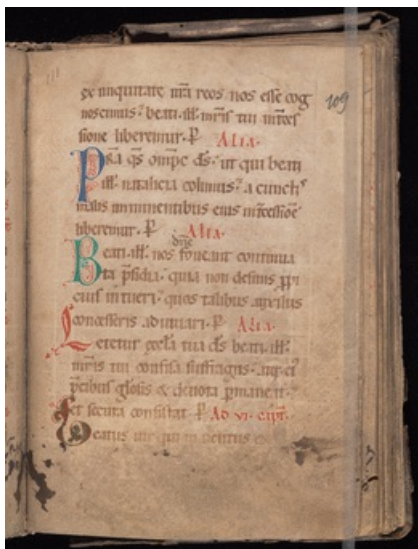 109
ge iniquitate nr̄a reos nos esse cog
noscimus. beati .ill. mr̄is tui int̄ces
sione liberemur. P Alia.
Psta q̄s omp̄s ds̄. ut qui beati
ill. natalicia colimus. a cunctis
malis imminentibus eius int̄cessiōe
liberemur. P Alia.
dn̄e
Beati .ill. nos foveant continua
ta p̄sidia. quia non desinis p̄pi
cius intueri. quos talibus auxiliis
concesseris adiuvari. P Alia.
Letetur eccl̄a tua ds̄ beati .ill.
mr̄is tui confisa suffragiis. atq. ei
p̄cibus gl̄osis & devota p̄maneat.
et secura consistat. P Ad vi. capt̄.
Beatus vir qui in